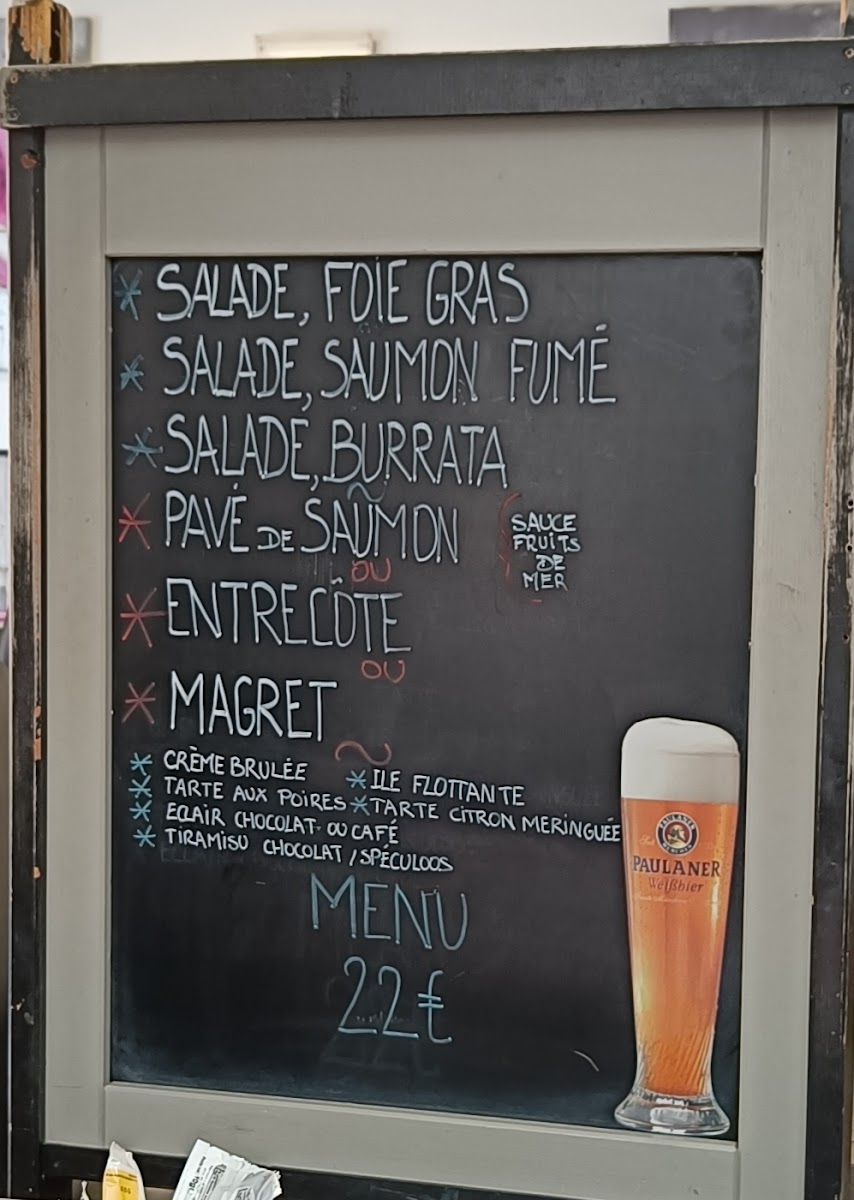 * SALADE, FOIE GRAS
* SALADE, SAUMON FUMÉ
* SALADE, BURRATA
~
* PAVÉ DE SAUMON
SAUCE
FRUITS
DE
MER
OU
* ENTRECÔTE
OU
* MAGRET
~
* CRÈME BRULÉE
* TARTE AUX POIRES
* ECLAIR CHOCOLAT OU CAFÉ
* TIRAMISU CHOCOLAT / SPÉCULOOS
* ILE FLOTTANTE
* TARTE CITRON MERINGUÉE
MENU
22€
PAULANER
MÜNCHEN
PAULANER
Weißbier